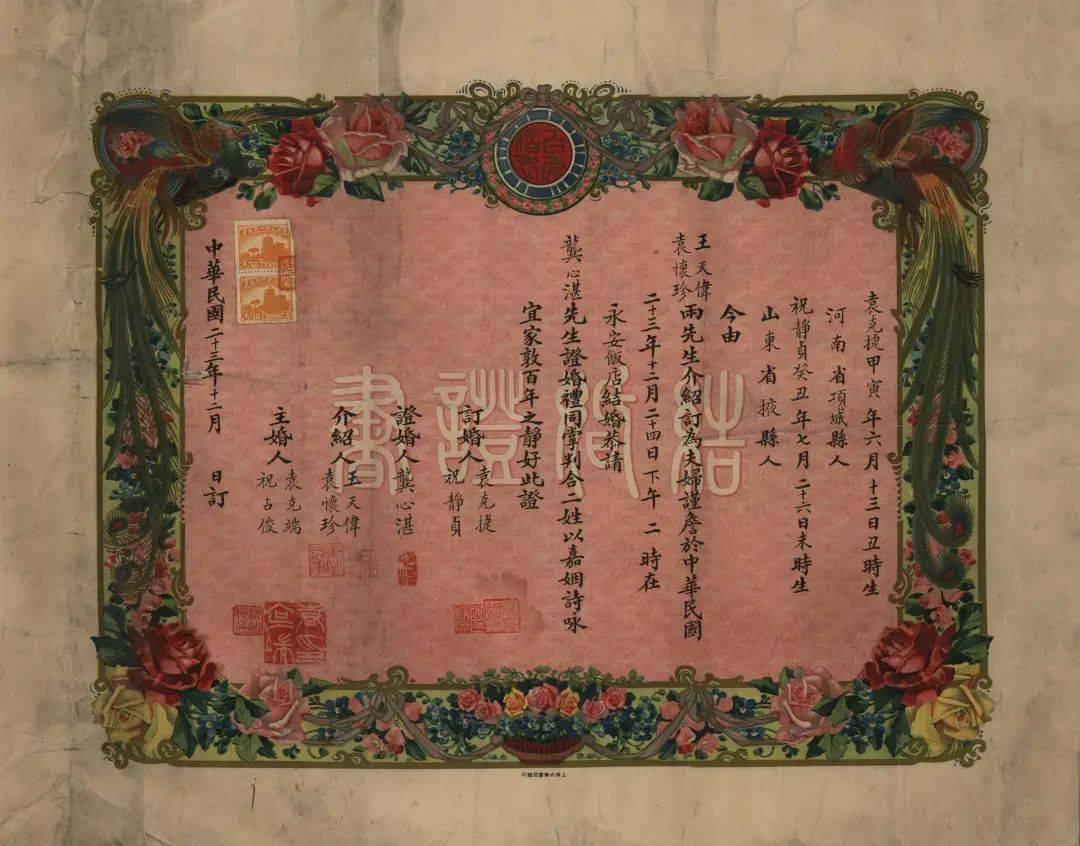 結婚證書
袁克捷甲寅年六月十三日丑時生
河南省項城縣人
祝靜貞癸丑年七月二十六日未時生
山東省掖縣人
今由
王天偉
袁懷珍
兩先生介紹訂為夫婦謹詹於中華民國
二十三年十二月二十四日下午二時在
永安飯店結婚恭請
龔心湛先生證婚禮同掌判合二姓以嘉姻詩咏
宜家敦百年之靜好此證
訂婚人
袁克捷
祝靜貞
證婚人龔心湛
介紹人
王天偉
袁懷珍
主婚人
袁克端
祝占俊
中華民國二十三年十二月 日訂